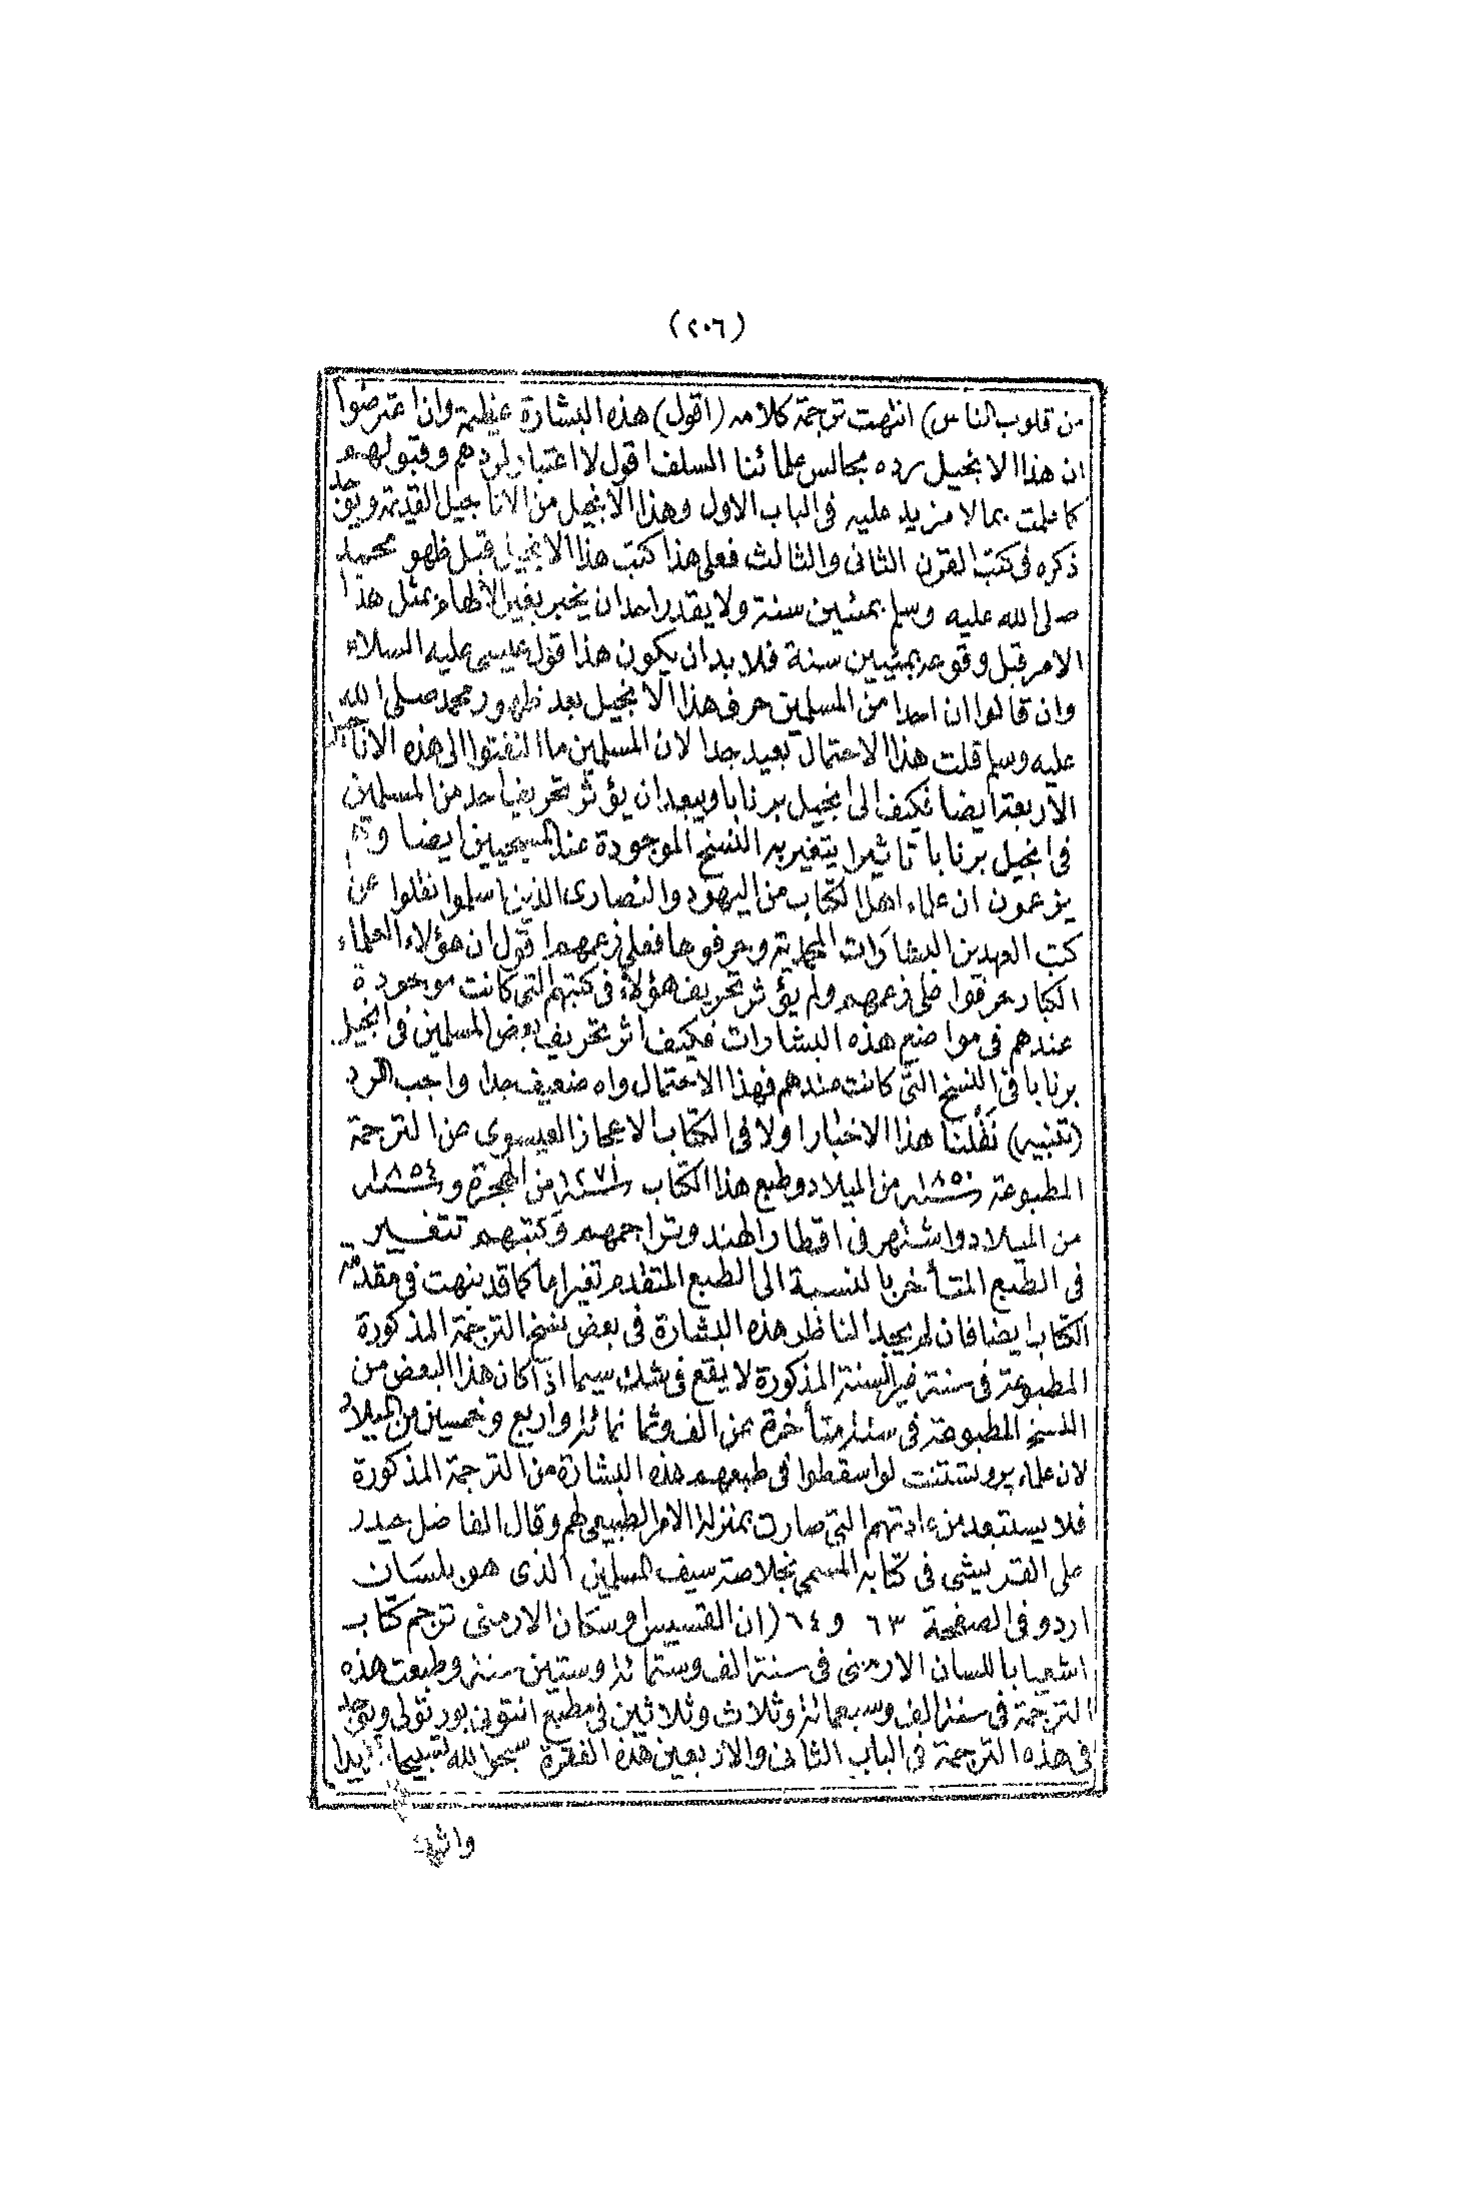 (٢٠٦)
من قلوب الناس) انتهت ترجمة كلامه (اقول) هذه البشارة عظيمة وان اعترضوا
ان هذا الانجيل رده مجالس علمائنا السلف اقول لا اعتبار لردهم وقبولهم
كما علمت بما لا مزيد عليه فى الباب الاول وهذا الانجيل من الاناجيل القديمة ويوجد
ذكره فى كتب القرن الثانى والثالث فعلى هذا كتب هذا الانجيل قبل ظهور محمد
صلى الله عليه وسلم بمئتين سنة ولا يقدر احد ان يخبر بغير الالهام بمثل هذا
الامر قبل وقوعه بمئتين سنة فلا بد ان يكون هذا قول عيسى عليه السلام
وان قالوا ان احدا من المسلمين حرف هذا الانجيل بعد ظهور محمد صلى الله
عليه وسلم قلت هذا الاحتمال بعيد جدا لان المسلمين ما التفتوا الى هذه الاناجيل
الاربعة ايضا فكيف الى انجيل برنابا ويبعد ان يؤثر تحريف احد من المسلمين
فى انجيل برنابا تاثيرا يتغير به النسخ الموجودة عند المسيحيين ايضا وهم
يزعمون ان علماء اهل الكتاب من اليهود والنصارى الذين اسلموا نقلوا عن
كتب العهدين البشارات المحمدية وحرفوها فعلى زعمهم اقول ان هؤلاء العلماء
الكبار حرفوا على زعمهم ولم يؤثر تحريف هؤلاء فى كتبهم التى كانت موجودة
عندهم فى مواضع هذه البشارات فكيف اثر تحريف بعض المسلمين فى انجيل
برنابا فى النسخ التى كانت عندهم فهذا الاحتمال واه ضعيف جدا واجب الرد
(تنبيه) نقلنا هذا الاخبار اولا فى الكتاب الاعجاز العيسوى عن الترجمة
المطبوعة سنة ١٨٥٠ من الميلاد وطبع هذا الكتاب سنة ١٢٧١ من الهجرة وسنة ١٨٥٤
من الميلاد واشتهر فى اقطار الهند وتراجمهم وكتبهم تتغير
فى الطبع المتأخر بالنسبة الى الطبع المتقدم تغيرا ما كما قد نبهت فى مقدمة
الكتاب ايضا فان لم يجد الناظر هذه البشارة فى بعض نسخ الترجمة المذكورة
المطبوعة فى سنة غير السنة المذكورة لا يقع فى شك سيما اذا كان هذا البعض من
النسخ المطبوعة فى سنة متأخرة عن الف وثمانمائة واربع وخمسين من الميلاد
لان علماء پروتستنت لو اسقطوا فى طبعهم هذه البشارة من الترجمة المذكورة
فلا يستبعد من عادتهم التى صارت بمنزلة الامر الطبيعى لهم وقال الفاضل حيدر
على القريشى فى كتابه المسمى بخلاصة سيف المسلمين الذى هو بلسان
اردو فى الصفحة ٦٣ و٦٤ (ان القسيس اوسكان الارمنى ترجم كتاب
اشعيا باللسان الارمنى فى سنة الف وستمائة وستين سنة وطبعت هذه
الترجمة فى سنة الف وسبعمائة وثلاث وثلاثين فى مطبع انتونى بورتولى ويوجد
فى هذه الترجمة فى الباب الثانى والاربعين هذه الفقرة سبحوا لله تسبيحا جديدا
واثر